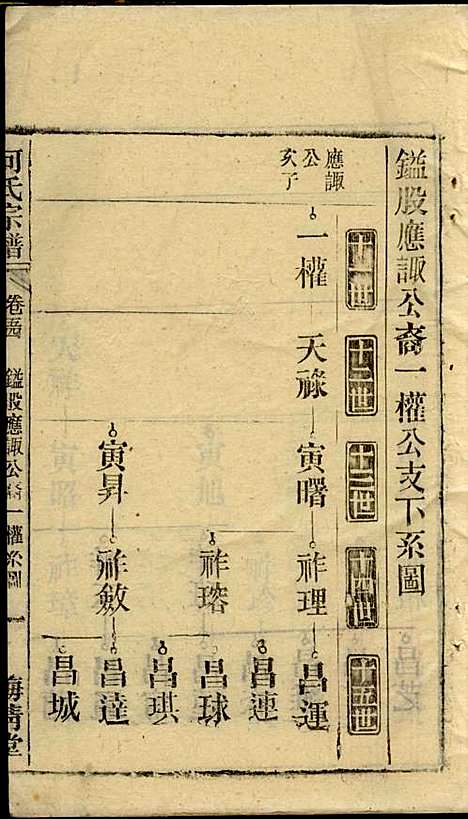 鎰股應諏公裔一權公支下系圖
十一世
十二世
十三世
十四世
十五世
應諏
公
次子
一權
天祿
寅曙
祚理
昌運
昌連
祚瑢
昌球
昌琪
寅昇
祚斂
昌達
昌城
何氏宗譜
卷
鎰股應諏公裔一權系圖
一